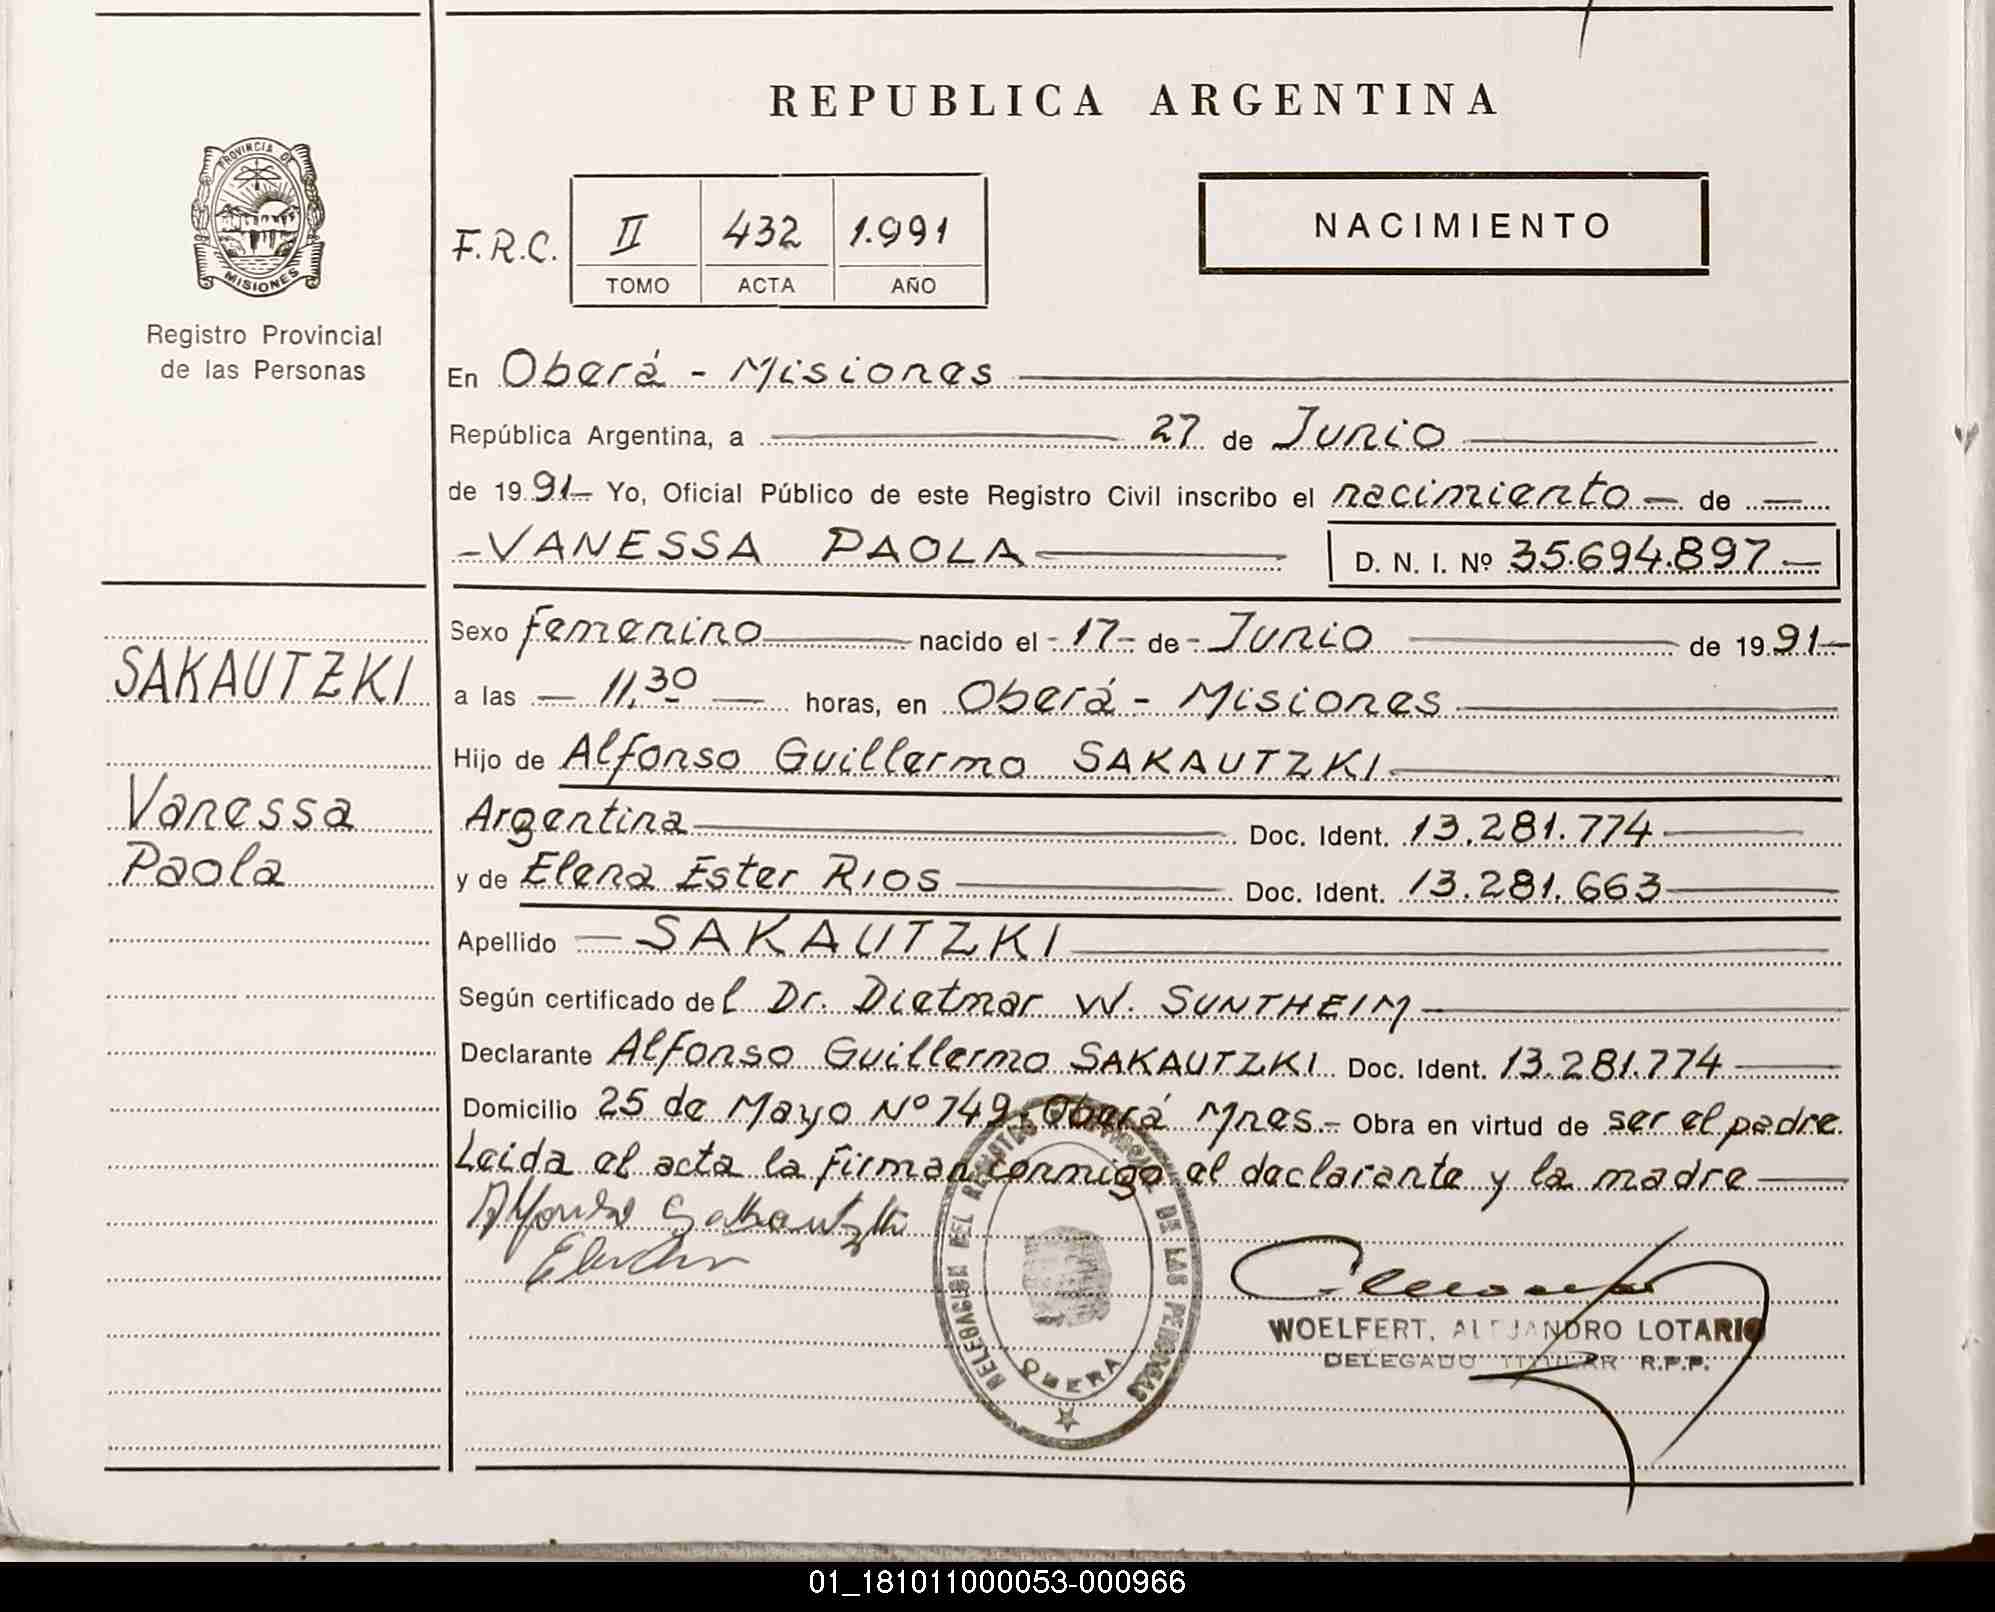 REPUBLICA ARGENTINA
PROVINCIA DE
MISIONES
Registro Provincial
de las Personas
F.R.C. II 432 1.991
TOMO ACTA AÑO
NACIMIENTO
En Oberá - Misiones
República Argentina, a 27 de Junio
de 1991- Yo, Oficial Público de este Registro Civil inscribo el nacimiento - de -
-VANESSA PAOLA D. N. I. Nº 35.694.897-
Sexo femenino nacido el -17- de- Junio de 1991-
SAKAUTZKI
a las - 11,30 - horas, en Oberá - Misiones
Hijo de Alfonso Guillermo SAKAUTZKI
Vanessa
Argentina Doc. Ident. 13.281.774
Paola
y de Elena Ester RIOS Doc. Ident. 13.281.663
Apellido - SAKAUTZKI
Según certificado del Dr. Dietmar W. SUNTHEIM
Declarante Alfonso Guillermo SAKAUTZKI Doc. Ident. 13.281.774
Domicilio 25 de Mayo Nº 749; Oberá Mnes.- Obra en virtud de ser el padre.
Leida el acta la firman conmigo el declarante y la madre
Alfonso Sakautzki
DELEGACION DEL REGISTRO PROVINCIAL DE LAS PERSONAS
OBERA
WOELFERT, ALEJANDRO LOTARIO
DELEGADO TITULAR R.P.P.
01_181011000053-000966